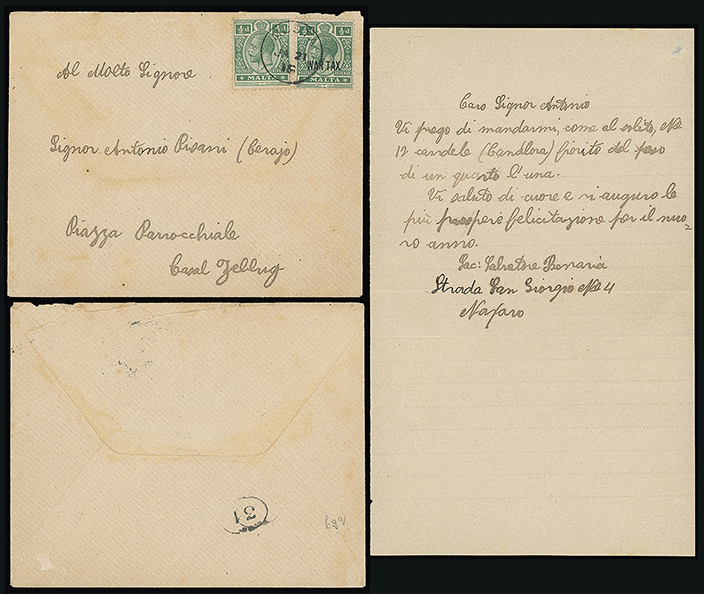 ½d ½d
WAR TAX
MALTA MALTA
MALTA
JA 21
18
Al Molto Signore
Signor Antonio Pisani (Cerajo)
Piazza Parrocchiale
Casal Zebbug
31
Caro Signor Antonio
Vi prego di mandarmi, come al solito, No
12 candele (Candlora) fiorite del peso
di un quarto l'una.
Vi saluto di cuore e vi auguro le
più felicitazione per il nuo=
vo anno.
Sac: Salvatore
Strada San Giorgio No 4
Naxaro